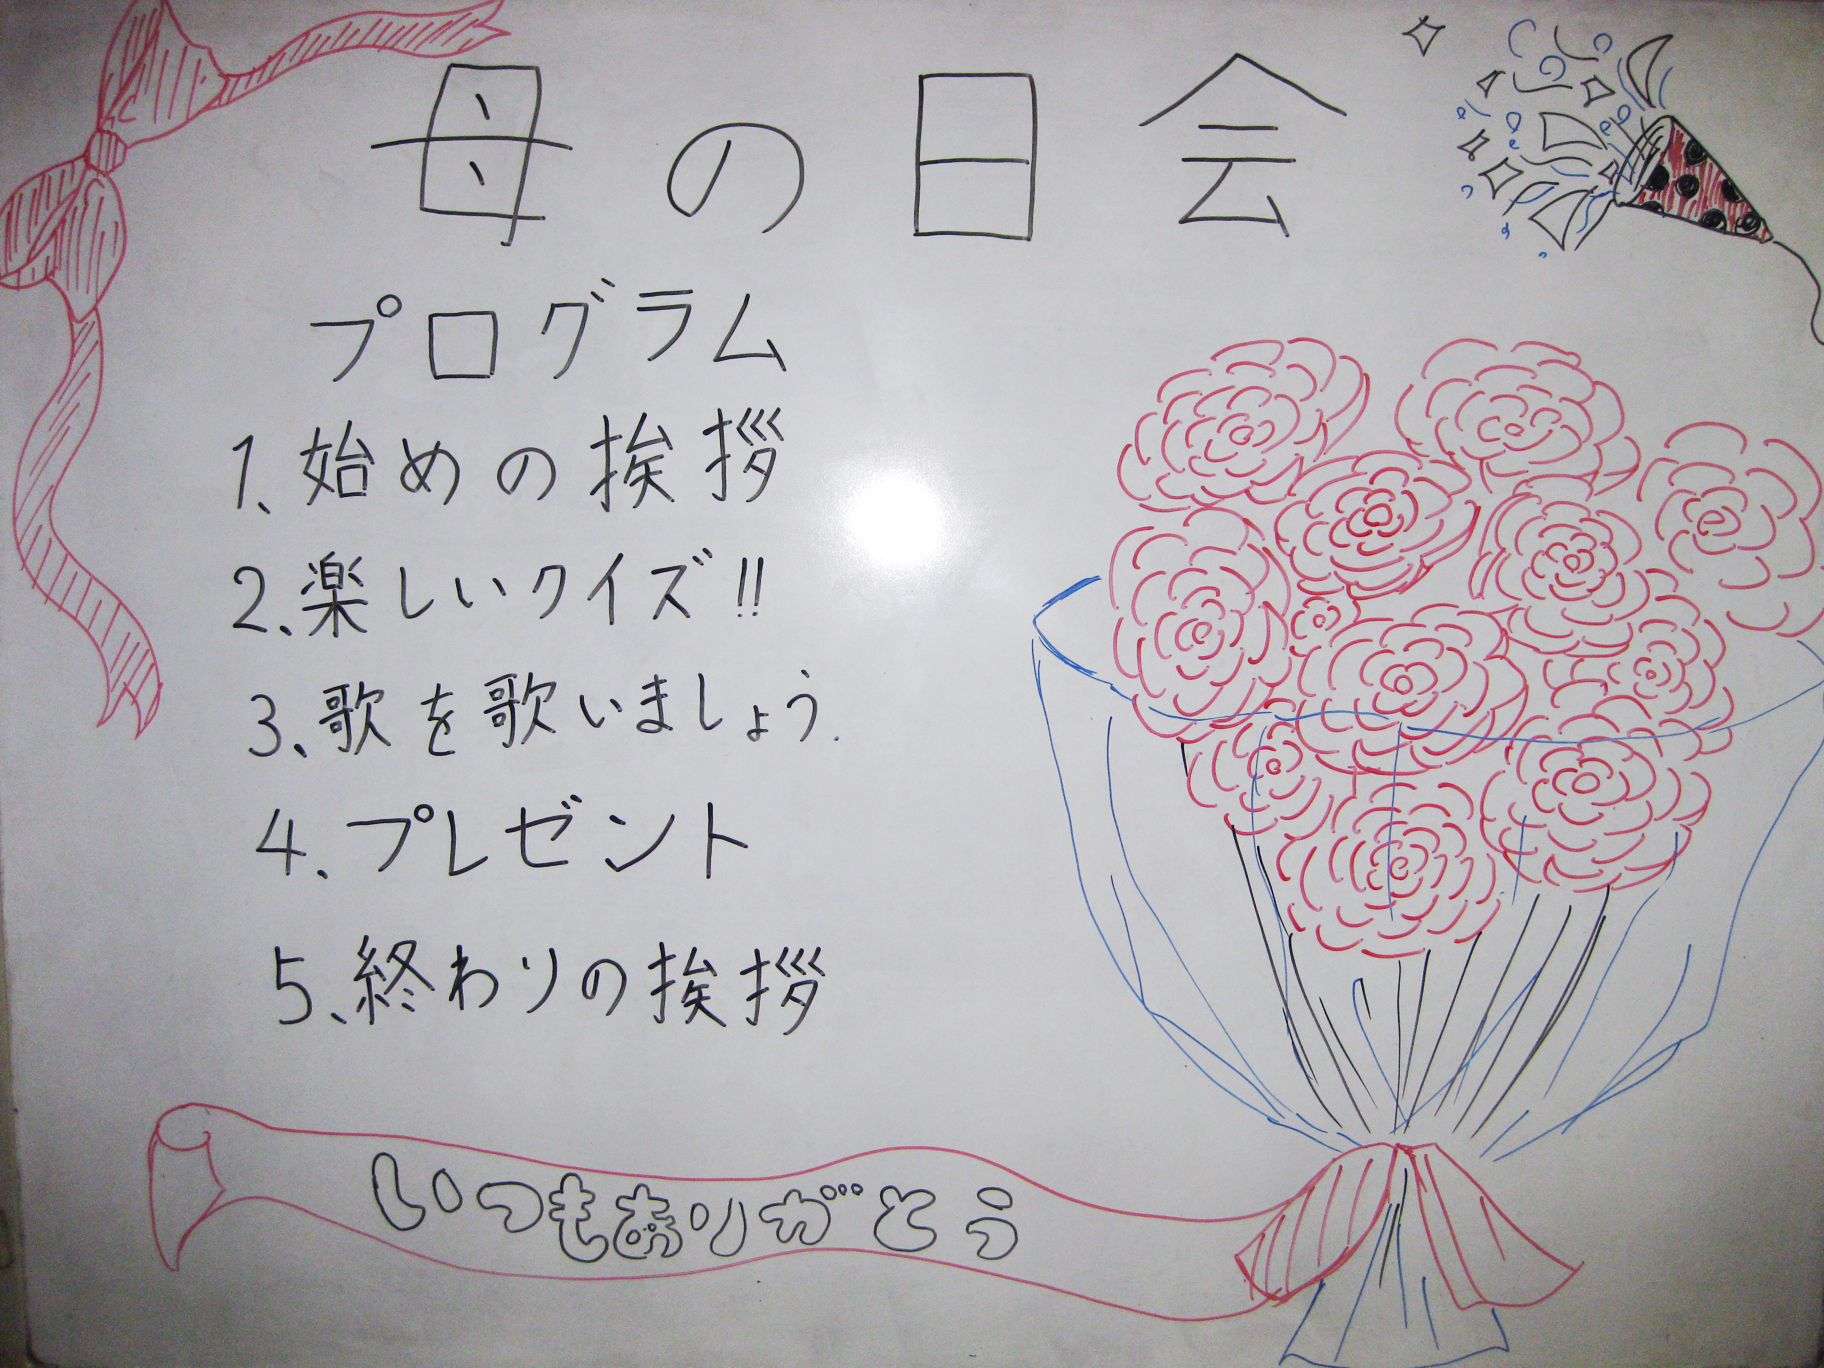 母の日会
プログラム
1、始めの挨拶
2、楽しいクイズ!!
3、歌を歌いましょう.
4、プレゼント
5、終わりの挨拶
いつもありがとう